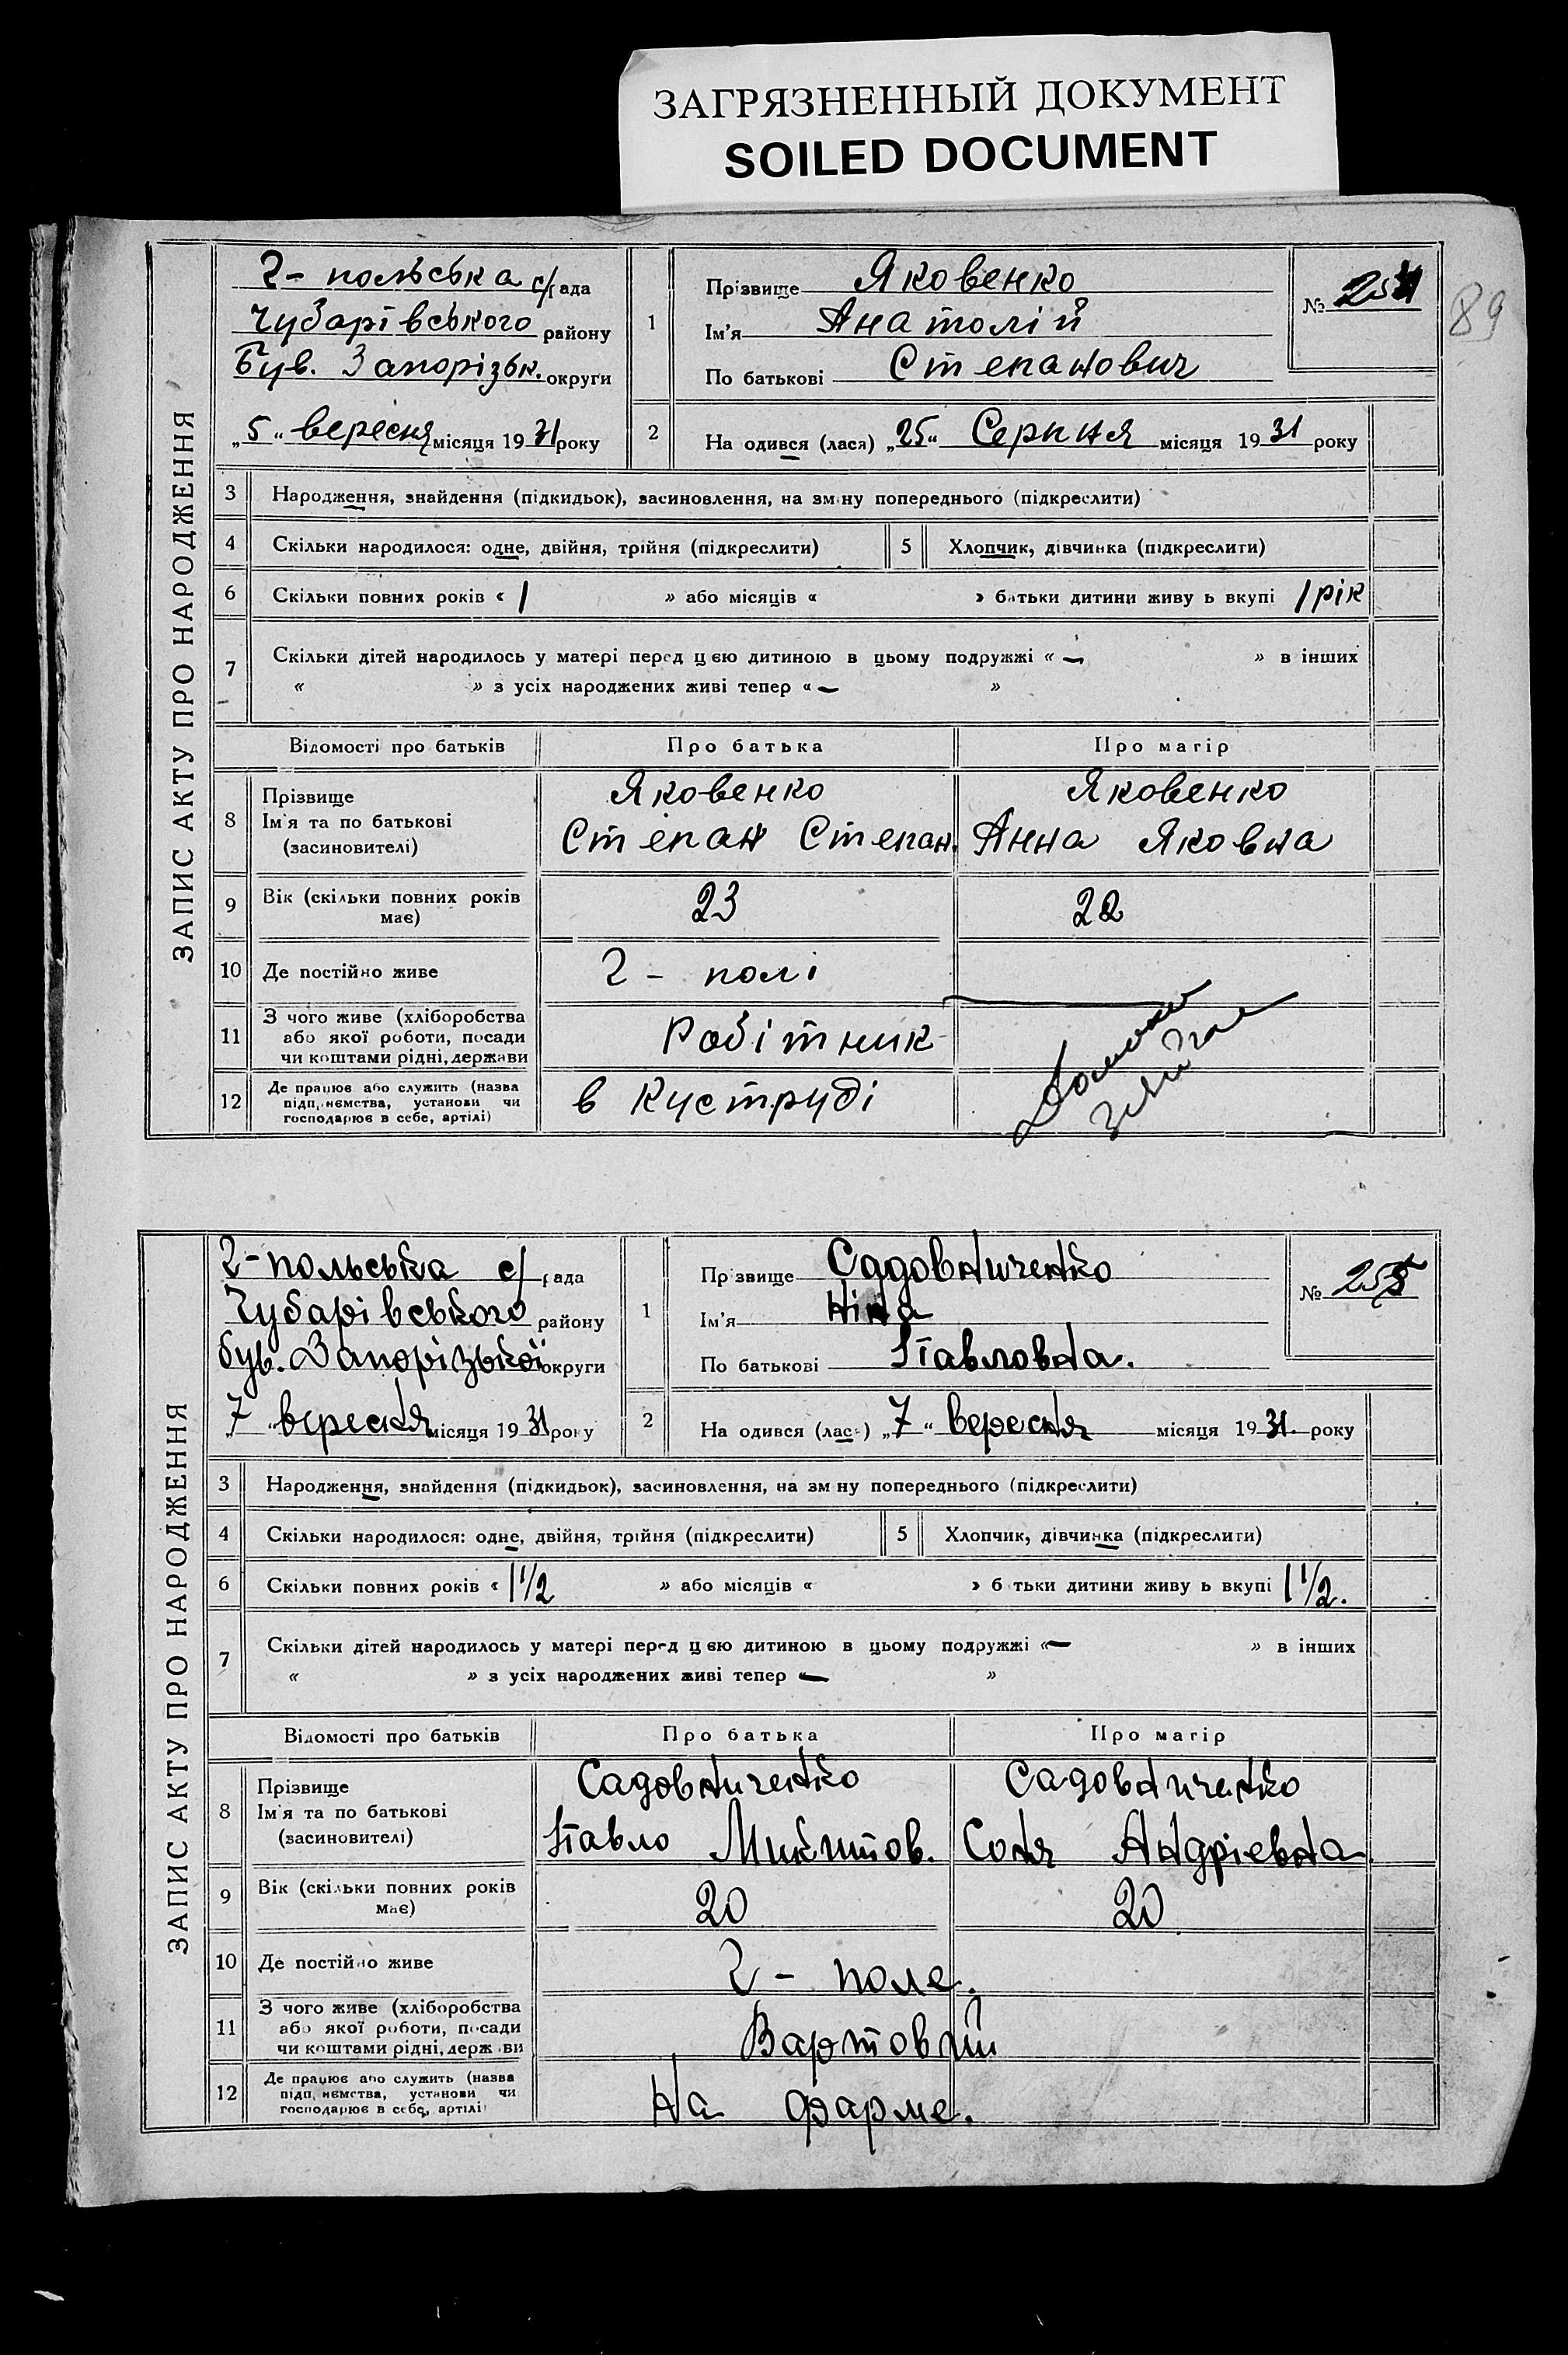 ЗАГРЯЗНЕННЫЙ ДОКУМЕНТ
SOILED DOCUMENT
89
ЗАПИС АКТУ ПРО НАРОДЖЕННЯ
Г-польська с/рада
Чубарівського району
Був. Запорізьк. округи
„5" вересня місяця 1931 року
1
Прізвище Яковенко
Ім'я Анатолій
По батькові Степанович
№ 254
2
На одився (лася) „25" Серпня місяця 1931 року
3 Народження, знайдення (підкидьок), засиновлення, на зм ну попереднього (підкреслити)
4 Скільки народилося: одне, двійня, трійня (підкреслити) 5 Хлопчик, дівчинка (підкреслити)
6 Скільки повних років « 1 » або місяців « » батьки дитини живу ь вкупі 1 рік
7 Скільки дітей народилось у матері перед цією дитиною в цьому подружжі « — » в інших
« » з усіх народжених живі тепер « — »
Відомості про батьків Про батька Про матір
8 Прізвище Ім'я та по батькові (засиновителі)
Яковенко Яковенко
Степан Степан. Анна Яковна
9 Вік (скільки повних років має) 23 22
10 Де постійно живе Г- полі
11 З чого живе (хліборобства або якої роботи, посади чи коштами рідні, держави Робітник
12 Де працює або служить (назва підприємства, установи чи господарює в себе, артілі) в Кустпруді
ЗАПИС АКТУ ПРО НАРОДЖЕННЯ
Г-польська с/рада
Чубарівського району
був. Запорізької округи
„7" вересня місяця 1931 року
1
Пр звище Садовниченко
Ім'я Ніна
По батькові Павловна.
№ 255
2
На одився (лась) „7" вересня місяця 1931. року
3 Народження, знайдення (підкидьок), засиновлення, на зм ну попереднього (підкреслити)
4 Скільки народилося: одне, двійня, трійня (підкреслити) 5 Хлопчик, дівчинка (підкреслити)
6 Скільки повних років « 1 1/2 » або місяців « » б тьки дитини живу ь вкупі 1 1/2.
7 Скільки дітей народилось у матері перед цією дитиною в цьому подружжі « — » в інших
« » з усіх народжених живі тепер « — »
Відомості про батьків Про батька Про матір
8 Прізвище Ім'я та по батькові (засиновителі)
Садовниченко Садовниченко
Павло Микитов. Соня Андрієвна
9 Вік (скільки повних років має) 20 20
10 Де постійно живе Г- поле.
11 З чого живе (хліборобства або якої роботи, посади чи коштами рідні, держави Вартовий
12 Де працює або служить (назва підприємства, установи чи господарює в себе, артілі) На фарме.